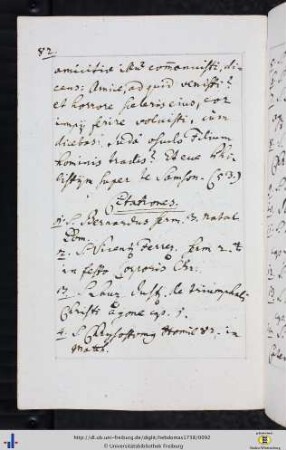 82.
amicitiae illud commonuisti, di-
cens: Amice, ad quid venisti?
et horrore sceleris eius, cor
impij ferire voluisti, cum
dicebas: Juda osculo Filium
hominis tradis? Et ecce Phi-
listijm super te Samson. (53.)
Citationes.
1. S. Bernardus serm. 3. Natal
Dom.
2. S. Vincent. Ferrer. serm 2.
in festo Corporis Chr:
3. S. Laur. Just. de triumphali
Christi agone cap. 5.
4. S. Chrysostomus Homil 83. in
Matth.
http://dl.ub.uni-freiburg.de/diglit/hebdomas1738/0092
© Universitätsbibliothek Freiburg